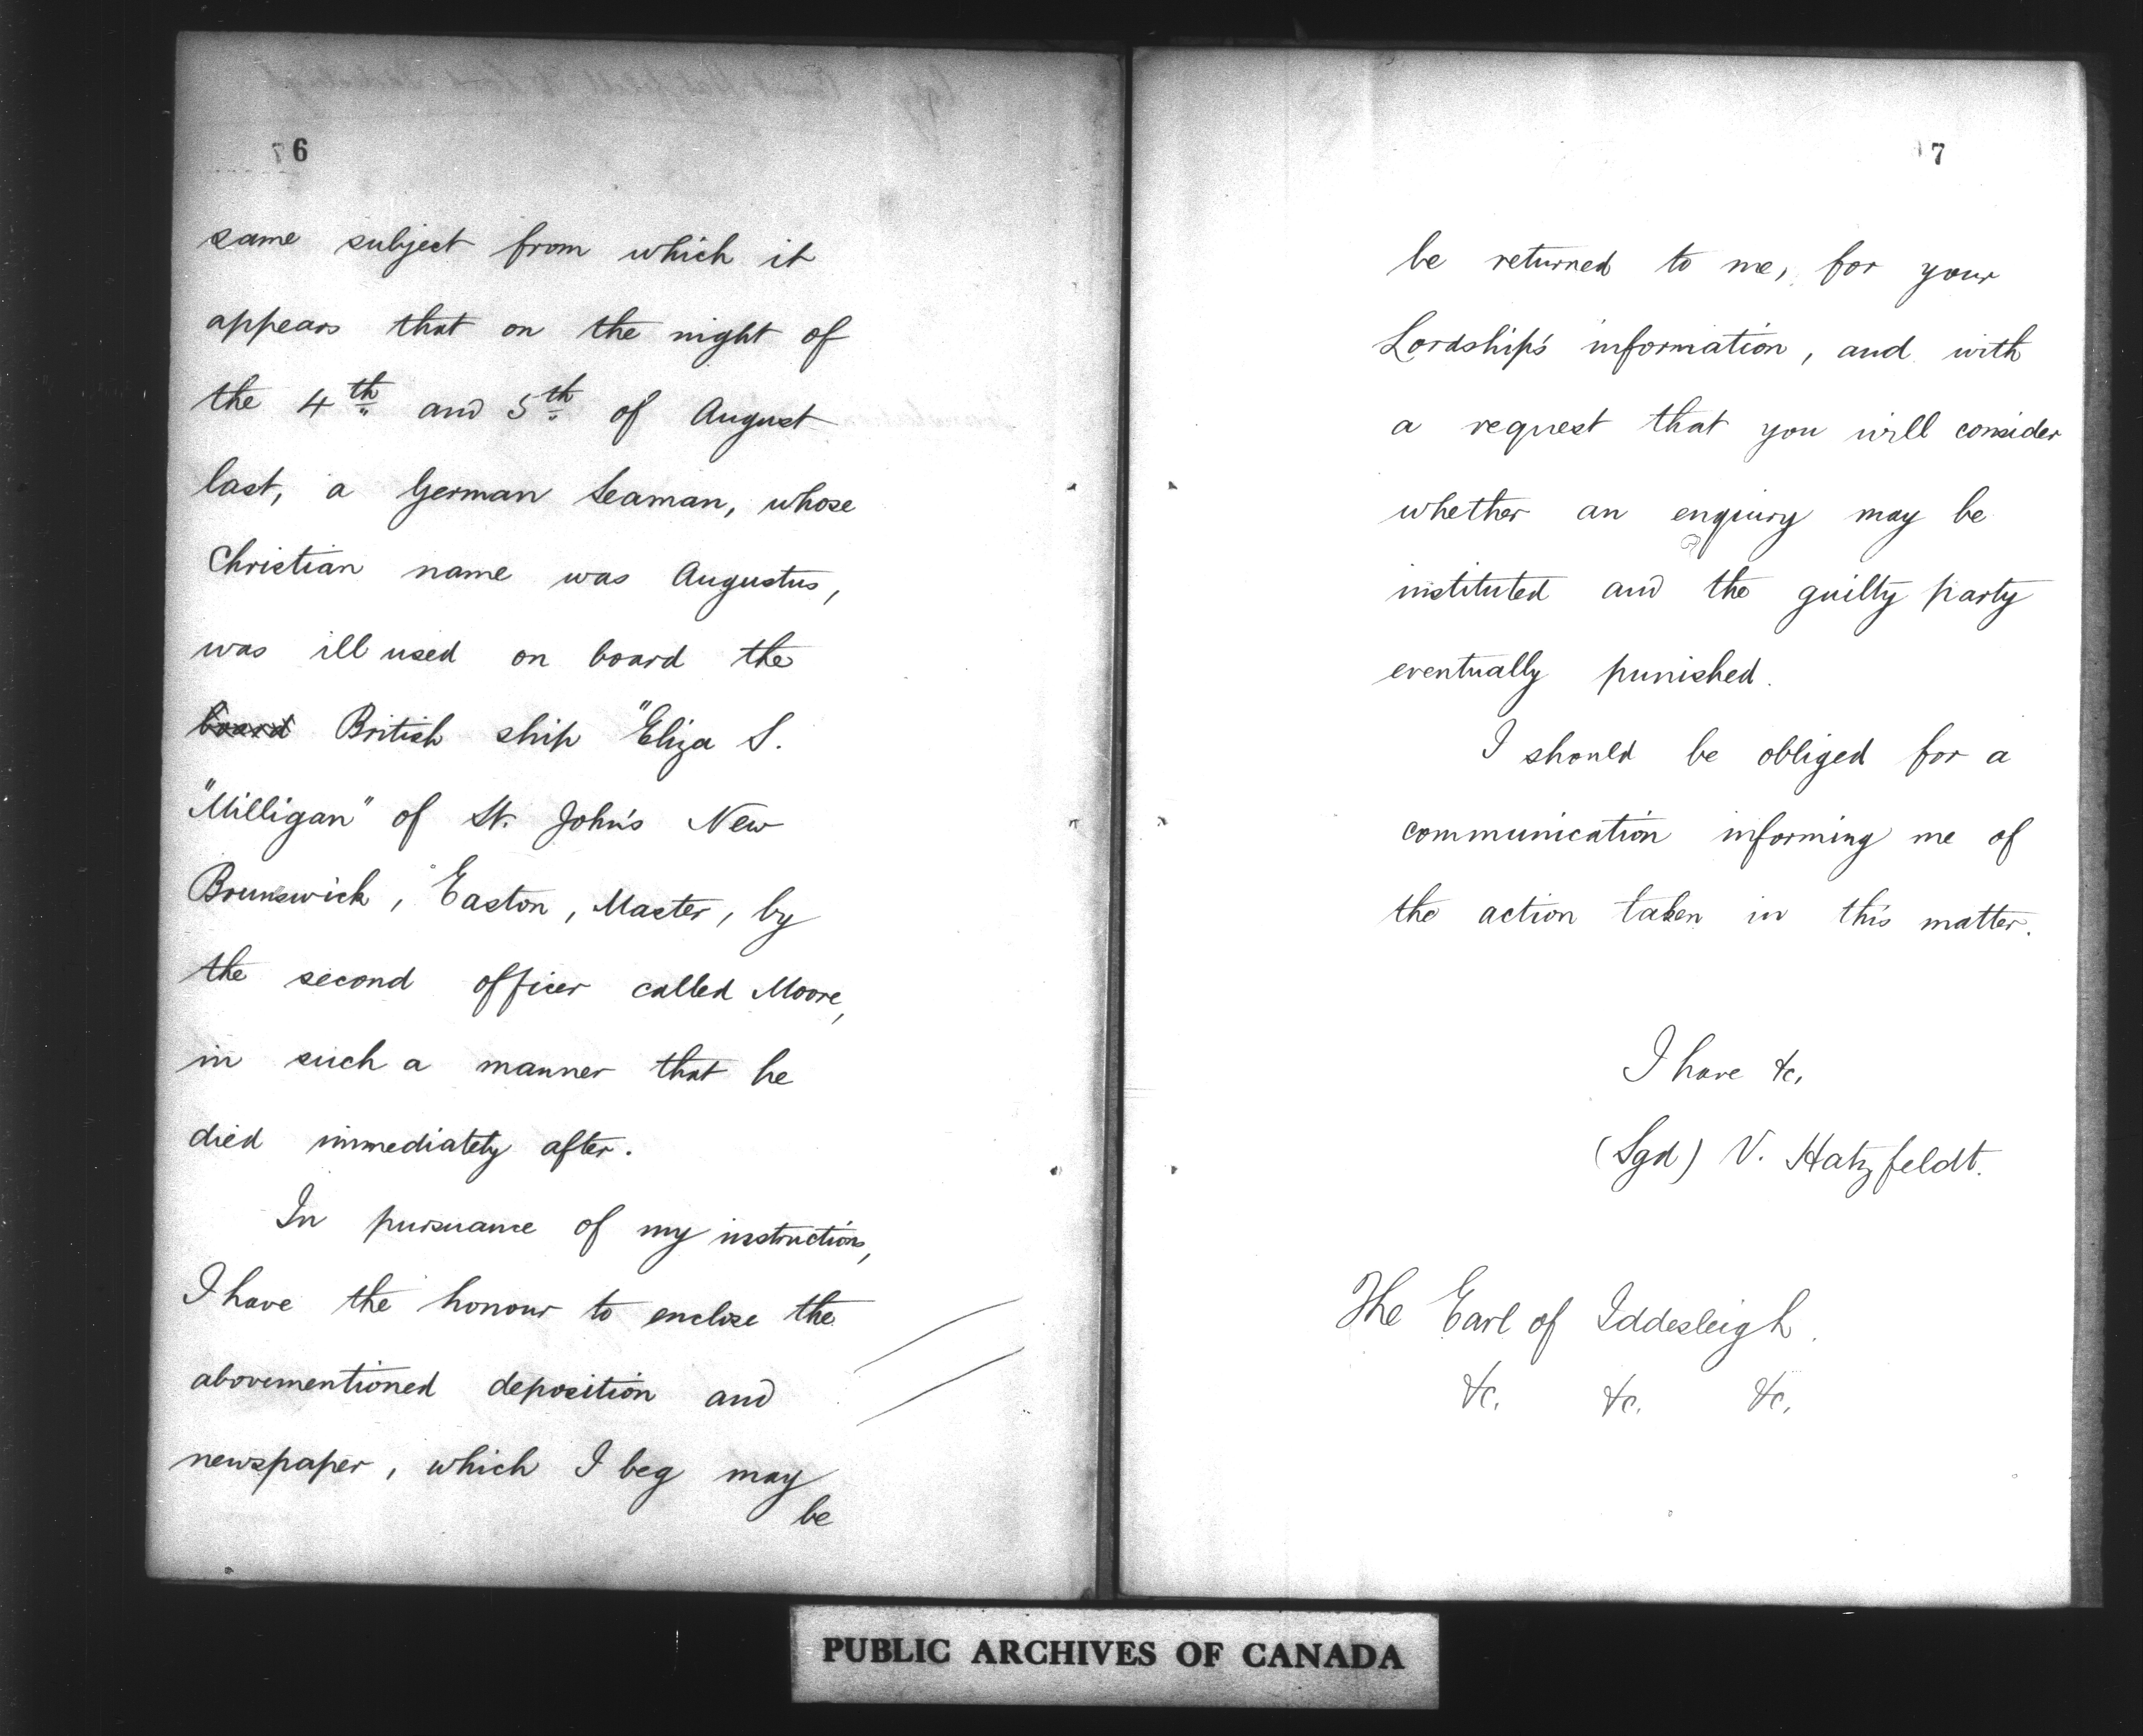 6
same subject from which it
appears that on the night of
the 4th and 5th of August
last, a German Seaman, whose
Christian name was Augustus,
was ill used on board the
board British ship "Eliza S.
"Milligan" of St. John's New
Brunswick, Easton, Master, by
the second officer called Moore,
in such a manner that he
died immediately after.
In pursuance of my instructions,
I have the honour to enclose the
abovementioned deposition and
newspaper, which I beg may
be
7
be returned to me, for your
Lordship's information, and with
a request that you will consider
whether an enquiry may be
instituted and the guilty party
eventually punished.
I should be obliged for a
communication informing me of
the action taken in this matter.
I have &c.
(Sgd) V. Hatzfeldt.
The Earl of Iddesleigh.
&c. &c. &c.
PUBLIC ARCHIVES OF CANADA